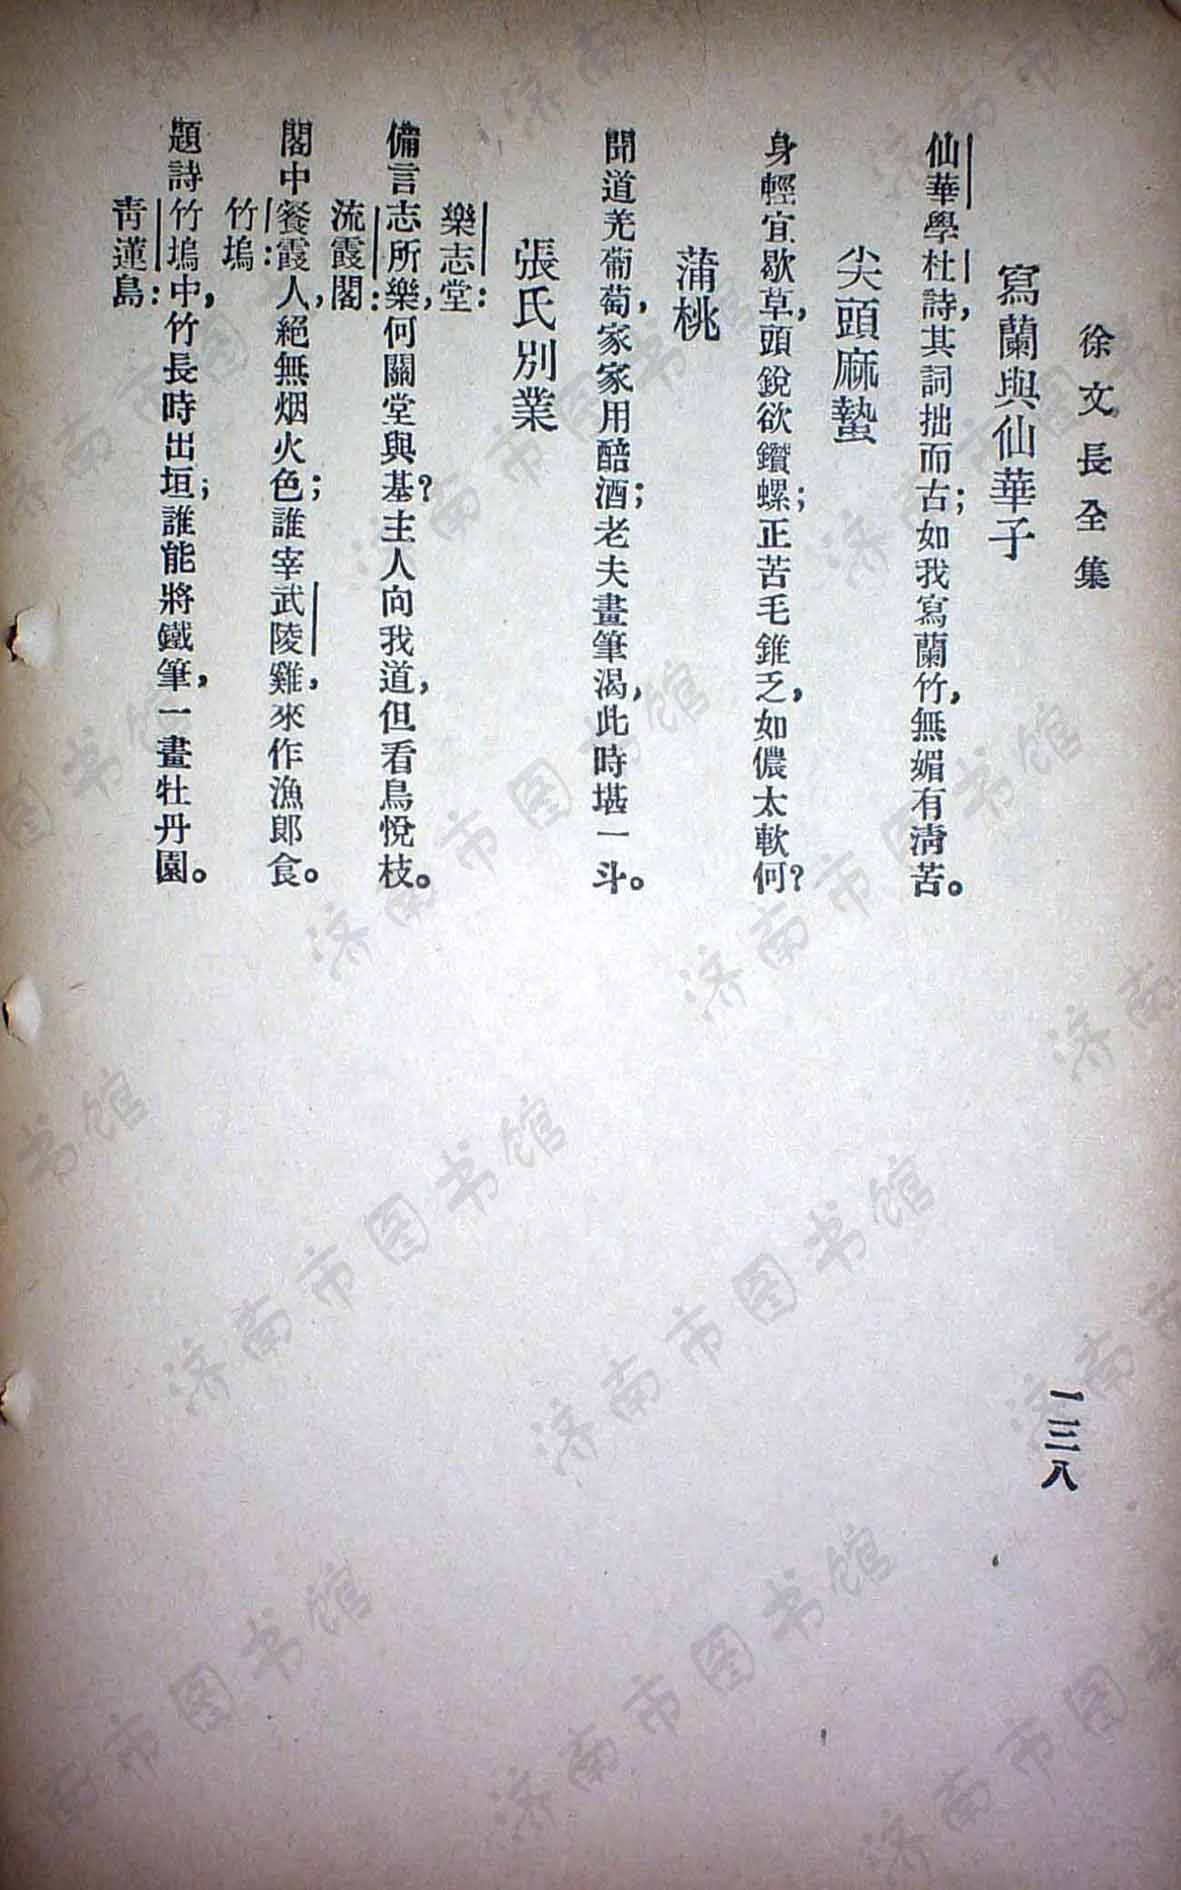 徐文長全集
寫蘭與仙華子
仙華學杜詩，其詞拙而古；如我寫蘭竹，無媚有清苦。
尖頭麻蟄
身輕宜歇草，頭銳欲鑽螺；正苦毛錐乏，如儂太軟何？
蒲桃
聞道羌葡萄，家家用醅酒；老夫畫筆渴，此時堪一斗。
張氏別業
樂志堂：
備言志所樂，何關堂與基？主人向我道，但看鳥悅枝。
流霞閣：
閣中餐霞人，絕無烟火色；誰宰武陵雞，來作漁郎食。
竹塢：
題詩竹塢中，竹長時出垣；誰能將鐵筆，一畫牡丹園。
青蓮島：
一三八
济南市图书馆